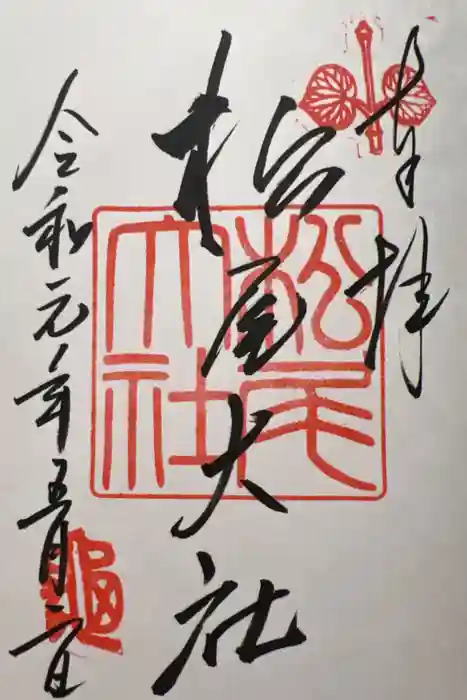 奉拝
松尾大社
松尾大社
令和元年五月二日
龜